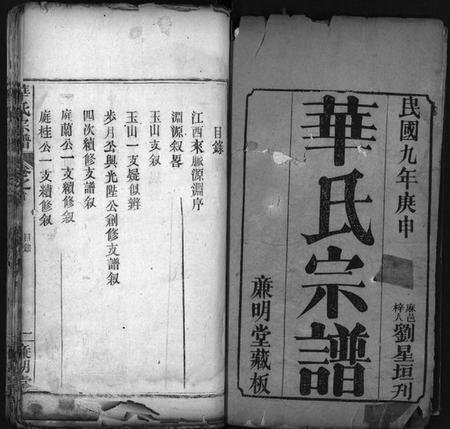 民國九年庚申
華氏宗譜
麻邑
梓人
劉星垣刋
廉明堂藏板
目錄
江西來脈源淵序
淵源叙畧
玉山支叙
玉山一支疑似辨
步月公與光陞公創修支譜叙
四次續修支譜叙
庭蘭公一支續修叙
庭桂公一支續修叙
華氏宗譜
目錄
二
廉明堂